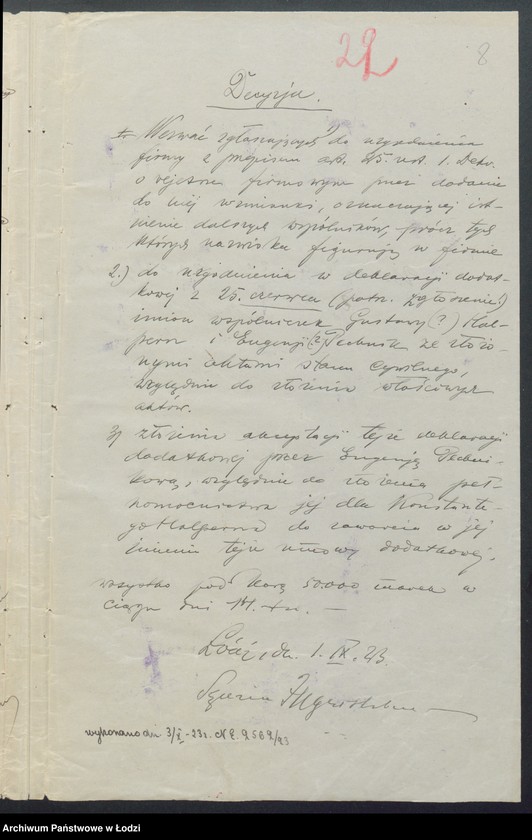 22
8
Decyzja.
1. Wezwać zgłaszających do uzgodnienia
firmy z przepisem art. 45 ust. 1. Dekr.
o rejestrze firmowym przez dodanie
do niej wzmianki, oznaczającej ist-
nienie dalszych wspólników, prócz tych
których nazwiska figurują w firmie
2.) do uzgodnienia w deklaracji dodat-
kowej z 25. czerwca (patrz. zgłoszenie!)
imion wspólniczek Gustawy (?) Hal-
pern i Eugenji (?) ze złożo-
nymi aktami stanu cywilnego,
względnie do złożenia właściwych
aktów.
3) złożenia akceptacji tejże deklaracji
dodatkowej przez Eugenję
względnie do złożenia peł-
nomocnictwa jej dla Konstante-
go Halperna do zawarcia w jej
imieniu tejże umowy dodatkowej.
wszystko pod karą 50.000 marek w
ciągu dni 14.
Łódź, dn. 1. IX. 23.
Sędzia
wykonano dn. 3/X -23 r. N E. 9569/23
Archiwum Państwowe w Łodzi